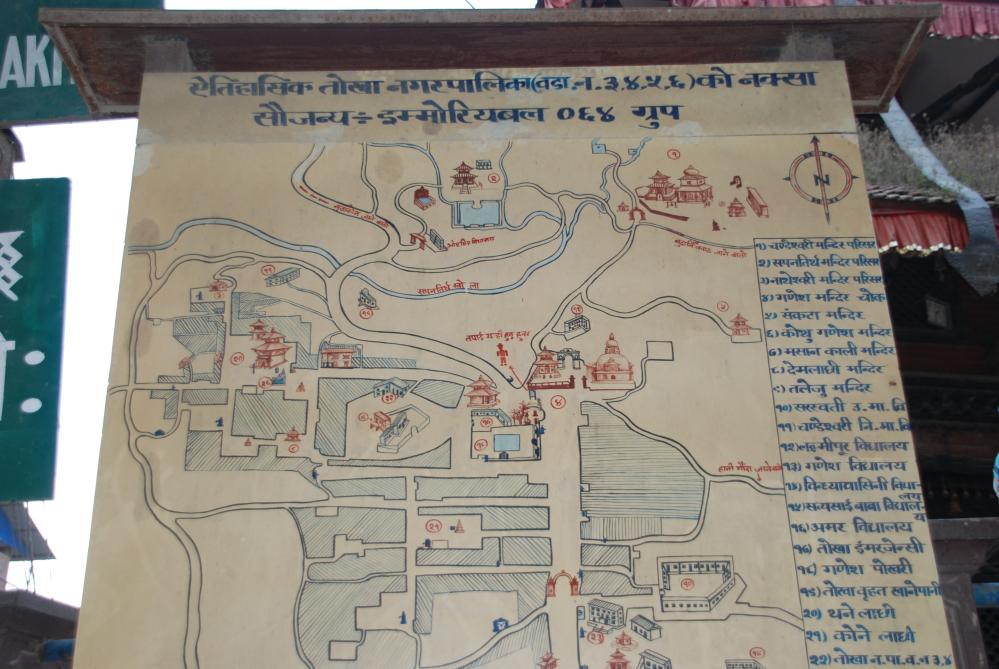 AKH
ऐतिहासिक तोखा नगरपालिका(वडा.न.३.४.५.६)को नक्सा
सौजन्य÷ इम्मोरियबल ०६४ ग्रुप
N
सपनतिर्थ खोला
तपाई यहाँ हुनुहुन्छ
१) चण्डेश्वरी मन्दिर परिसर
२) सपनतिर्थ मन्दिर परिसर
४) गणेश मन्दिर चोक
५) संकटा मन्दिर
६) कोथु गणेश मन्दिर
७) मसान काली मन्दिर
८) देमलाछी मन्दिर
९) तलेजु मन्दिर
१०) सरस्वती उ. मा. वि
११) चण्डेश्वरी नि. मा. वि
१२) लक्ष्मीपुर विद्यालय
१३) गणेश विद्यालय
१४) विन्ध्यावासिनी विद्या-
लय
१५) सत्यसाई बाबा विद्याल-
य
१६) अमर विद्यालय
१७) तोखा ईमरजेन्सी
१८) गणेश पोखरी
१९) तोखा वृहत खानेपानी
२०) थने लाछी
२१) कोने लाछी
२२) तोखा न.पा.व.न ३,४